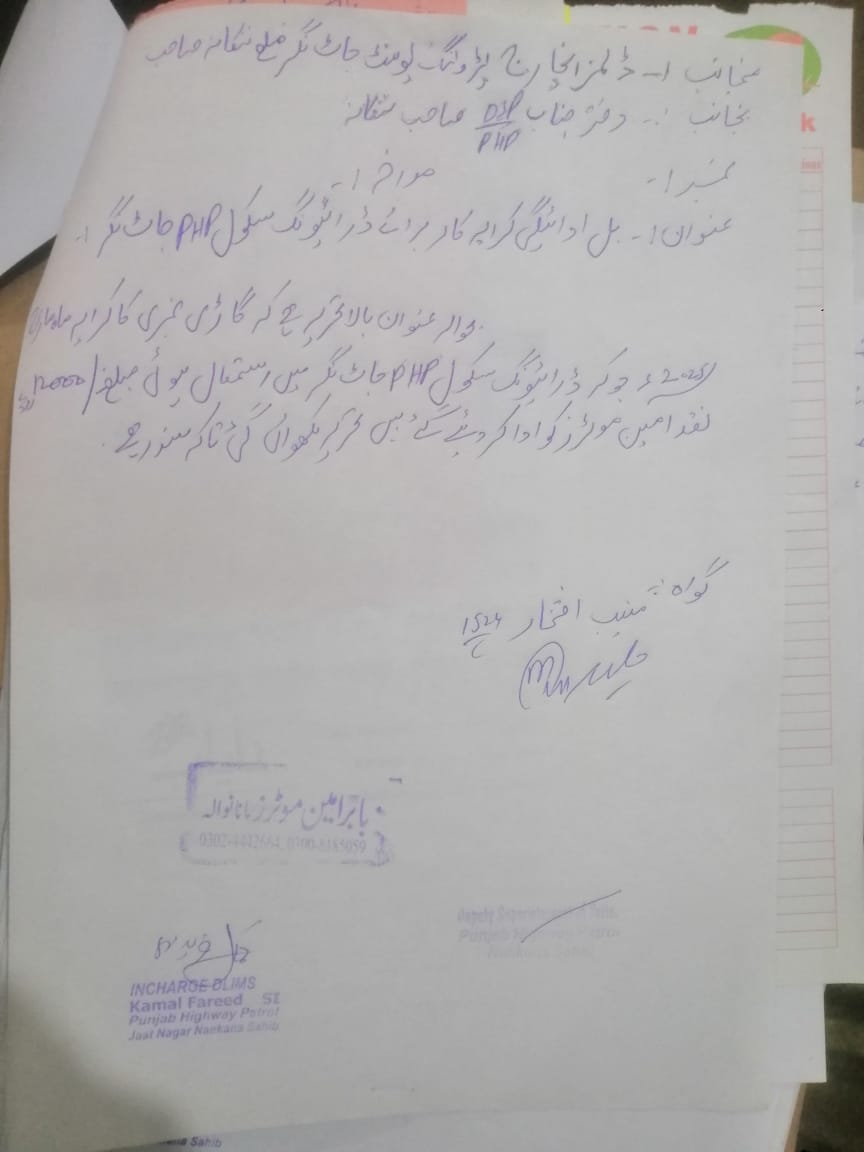 منجانب :۔ ڈلمز انچارج پٹرولنگ پوسٹ جاٹ نگر ضلع ننکانہ صاحب
بجانب :۔ دفتر جناب DSP/PHP صاحب ننکانہ
نمبر :۔ مورخہ :۔
عنوان :۔ بل ادائیگی کرایہ کار برائے ڈرائیونگ سکول PHP جاٹ نگر :۔
بحوالہ عنوان بالا تحریر ہے کہ گاڑی نجری کا کرایہ ماہ
2025ء جو کہ ڈرائیونگ سکول PHP جاٹ نگر میں استعمال ہوئی مبلغ /12000
نقد امین موٹرز کو ادا کر دیئے گئے ہیں تحریر لکھوائی گئی تاکہ سند رہے۔
گواہ :۔ منیب افتخار 1524
بابر امین موٹرز مانانوالہ
0302-4442664, 0300-8185059
Deputy Superintendent of Police,
Punjab Highway Patrol
Nankana Sahib
INCHARGE DLIMS
Kamal Fareed SI
Punjab Highway Patrol
Jaat Nagar Nankana Sahib